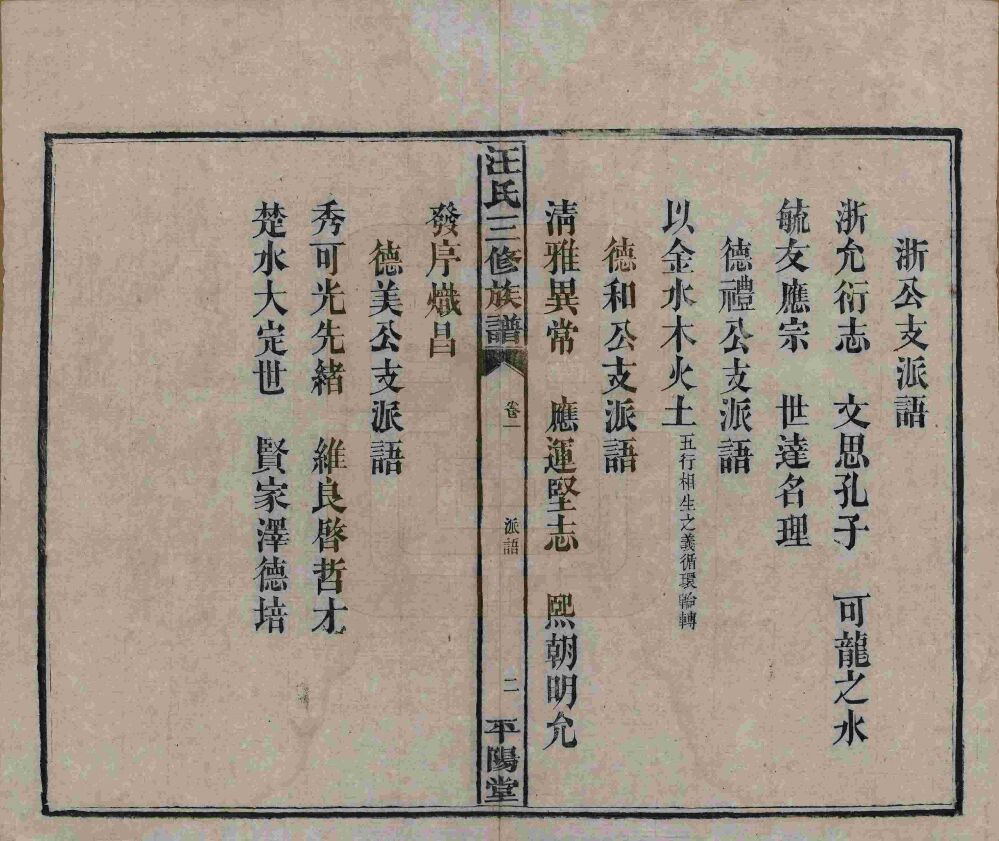 浙公支派語
浙允衍志　文思孔子　可龍之水
毓友應宗　世達名理
德禮公支派語
以金水木火土五行相生之義循環輪轉
德和公支派語
清雅異常　應運堅志　熙朝明允
汪氏三修族譜　卷一　派語　二　平陽堂
發序熾昌
德美公支派語
秀可光先緒　維良啓哲才
楚水大定世　賢家澤德培